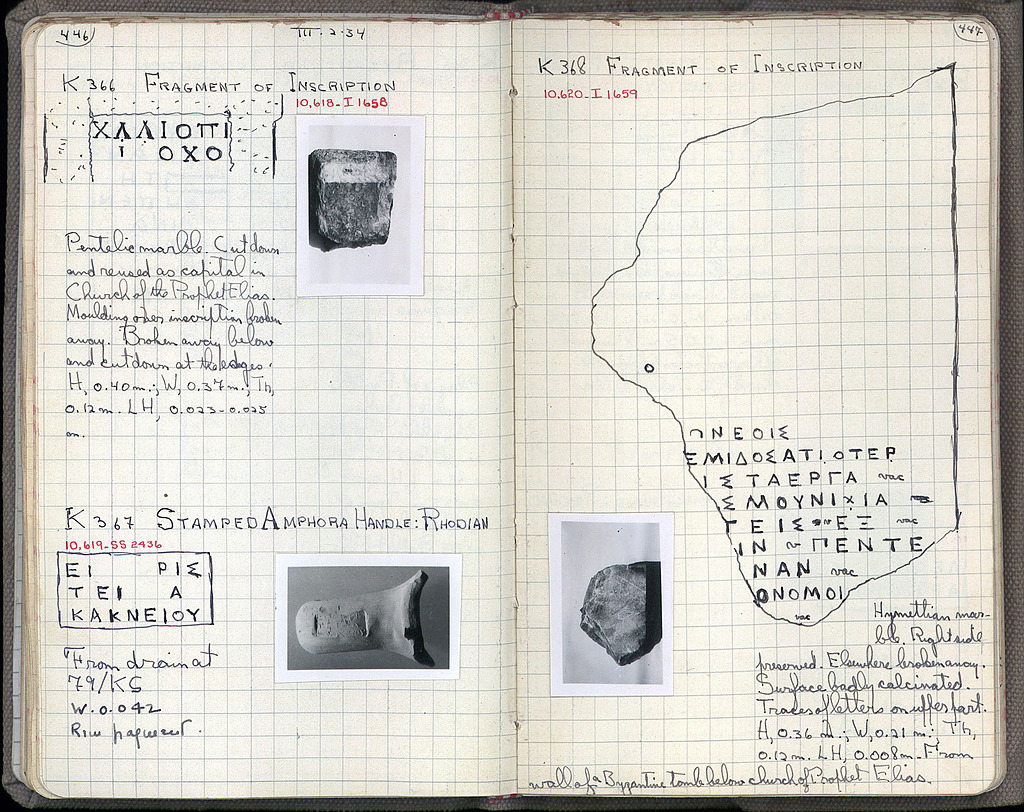 446
III·2·34
K 366 FRAGMENT OF INSCRIPTION
10,618-I 1658
ΧΑΛΙΟΠΙ
Ι ΟΧΟ
Pentelic marble. Cut down
and reused as capital in
Church of the Prophet Elias.
Moulding over inscription broken
away. Broken away below
and cut down at the edges.
H, 0.40m.; W, 0.37m.; Th,
0.12m. LH, 0.023-0.025
m.
K 367 STAMPED AMPHORA HANDLE: RHODIAN
10,619-SS 2436
ΕΙ ΡΙΣ
ΤΕΙ Α
ΚΑΚΝΕΙΟΥ
From drain at
79/ΚΣ
W. 0.042
Rim fragment.
447
K 368 FRAGMENT OF INSCRIPTION
10,620-I 1659
ΩΝΕΟΙΣ
ΕΜΙΔΟΣΑΤΙΟΤΕΡ
ΙΣΤΑΕΡΓΑ vac
ΣΜΟΥΝΙΧΙΑ
ΤΕΙΣ ΕΞ vac
ΙΝ ΠΕΝΤΕ
ΝΑΝ vac
ΟΝΟΜΟΙ
vac
Hymettian mar-
ble. Right side
preserved. Elsewhere broken away.
Surface badly calcinated.
Traces of letters on upper part.
H, 0.36 m.; W, 0.21 m.; Th,
0.12m. LH, 0.008m. From
wall of a Byzantine tomb below church of Prophet Elias.